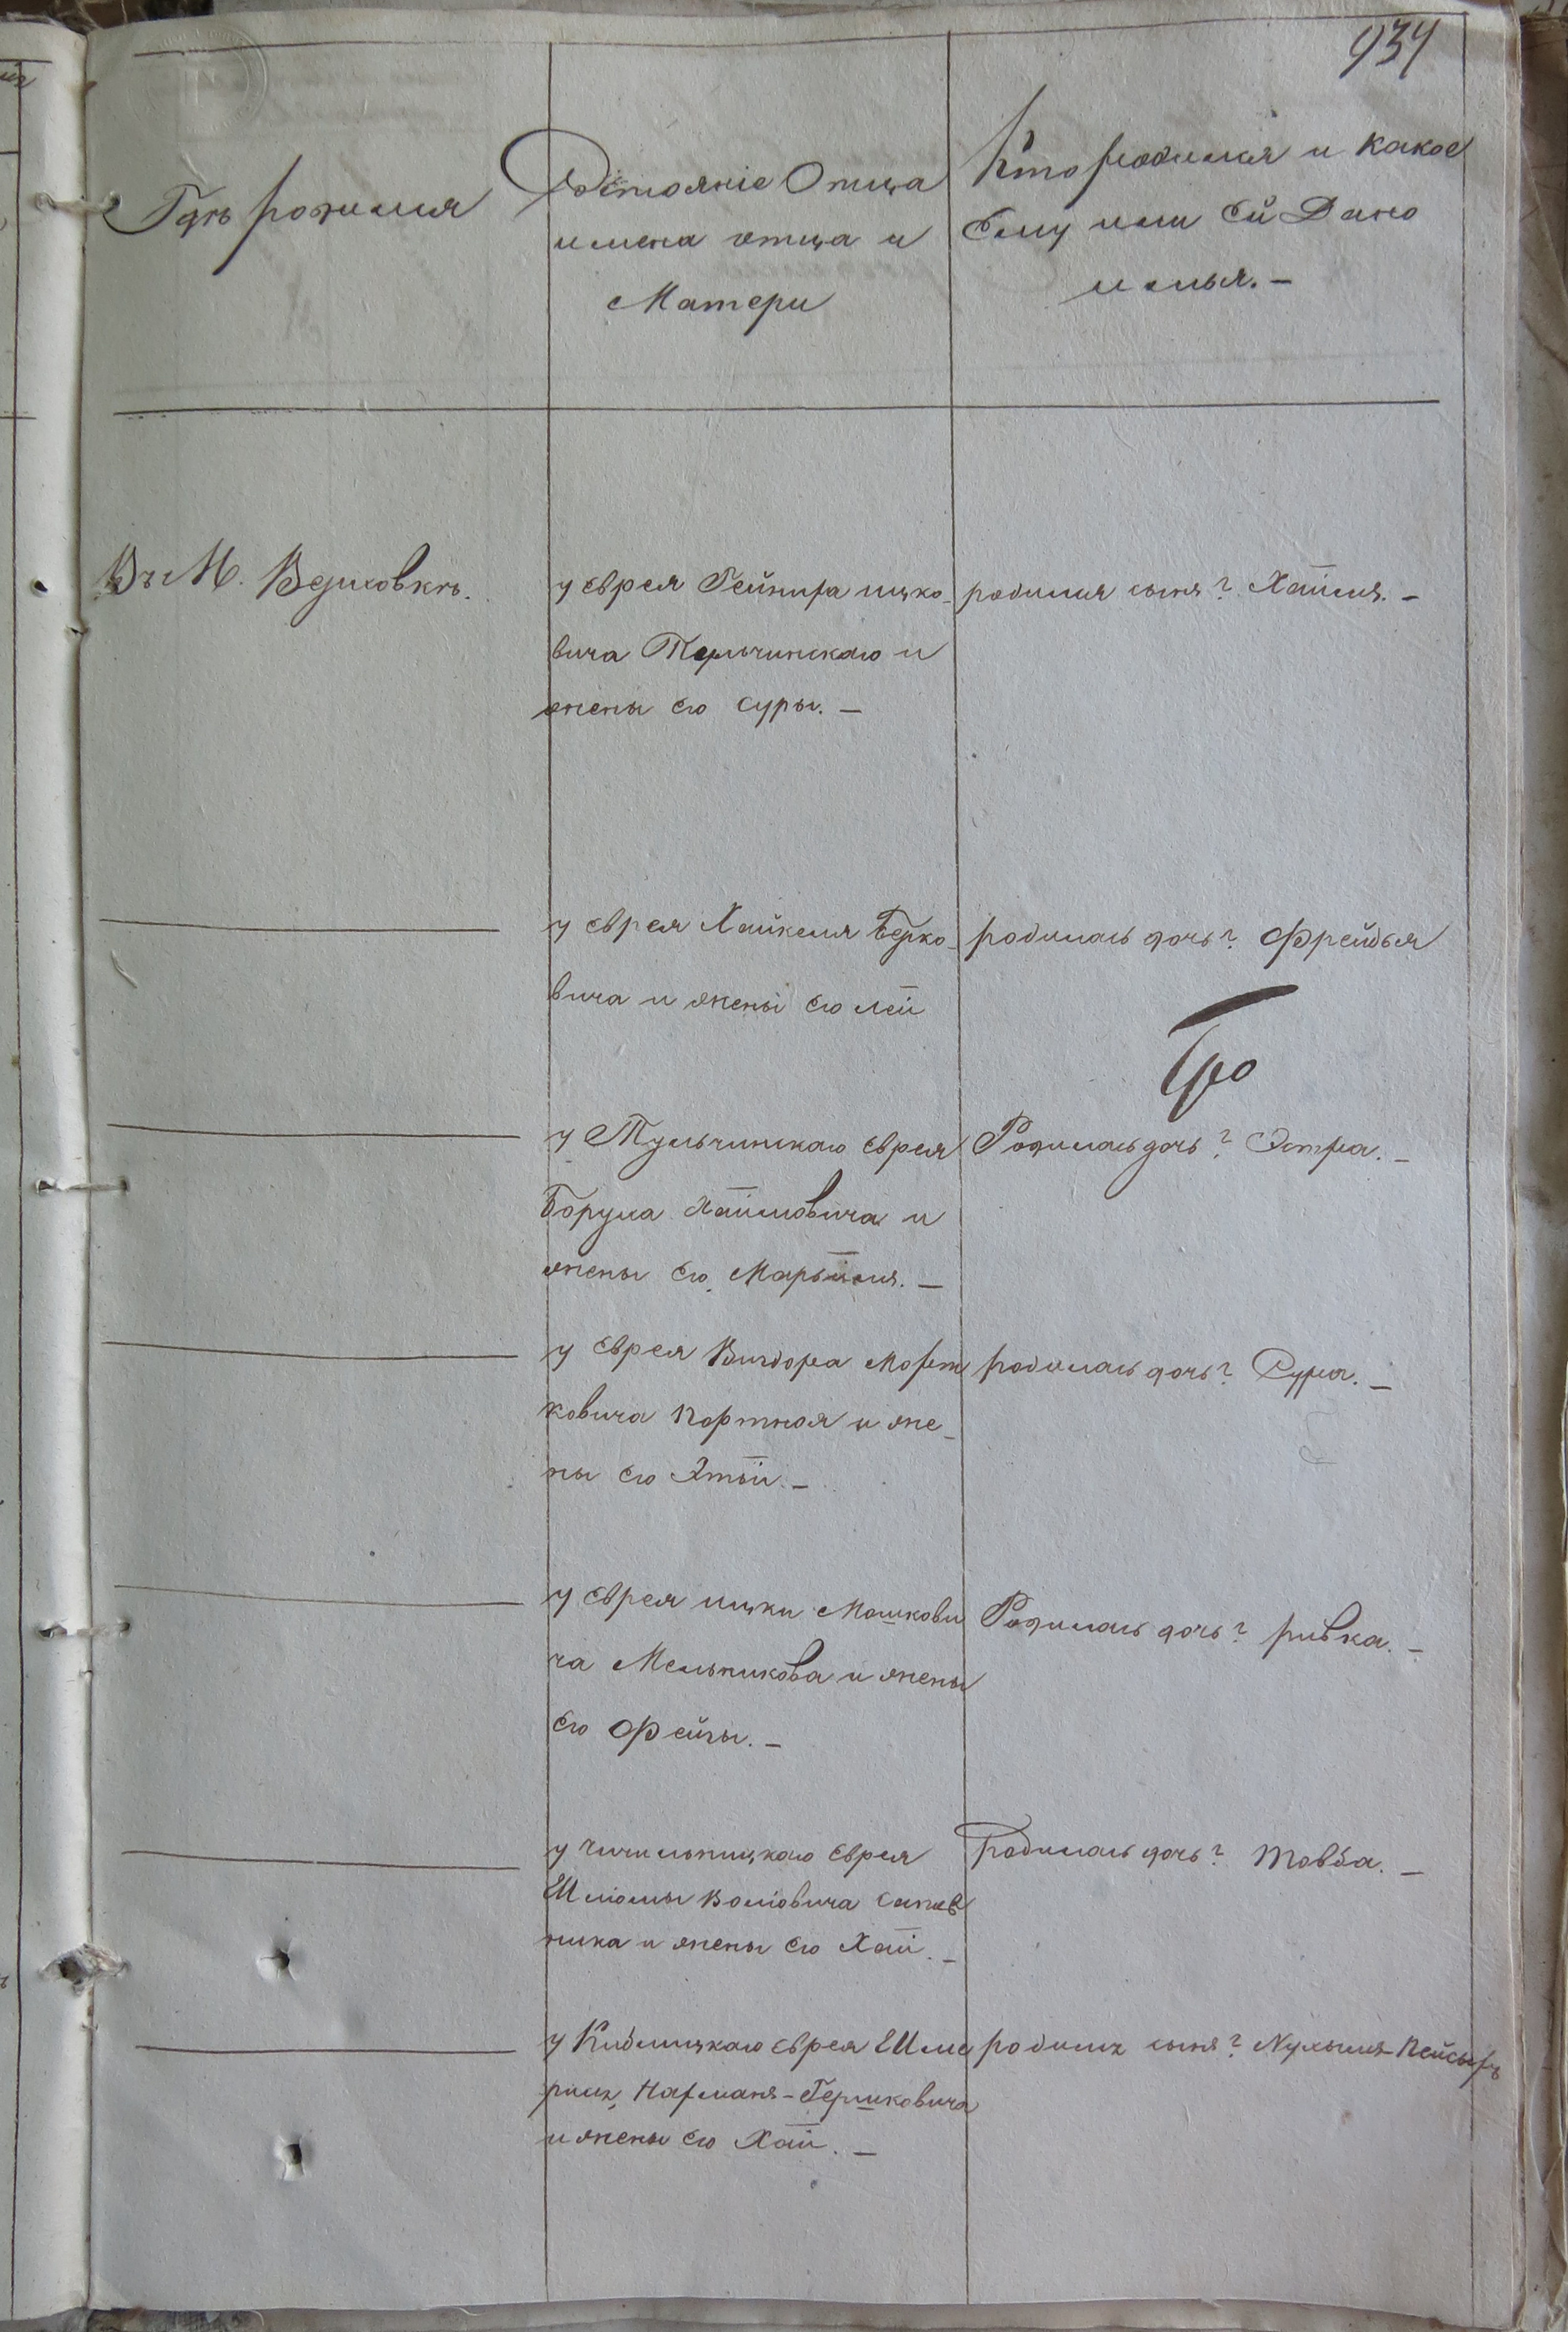 934
Гдѣ родился
Состояніе Отца
имена отца и
Матери
Кто родился и какое
Ему или Ей Дано
имья. –
Въ М.
у еврея Гейниха ицко-
вича Тульчинскаго и
жены его Суры. –
родился сынъ? Хаимъ. –
у еврея Хайкеля Берко-
вича и жены его леи
родилась дочь? Фрейдья
у Тульчинскаго еврея
Боруха Хаимовича и
жены его Марьями. –
Родилась дочь? Эстра. –
у еврея Вигдора Морт
ковича Портноя и же-
ны его Этьи –
родилась дочь? Сура. –
у еврея ицки Машкови
ча Мельникова и жены
его Фейги. –
Родилась дочь? ривка. –
у чичильницкаго еврея
Шліомы Воліовича Сапож
ника и жены его Хаи. –
родилась дочь? Товба. –
у Кублицкаго еврея Шме
риля Нахманъ-Гершковича
и жены его Хаи. –
родился сынъ? Нухымъ